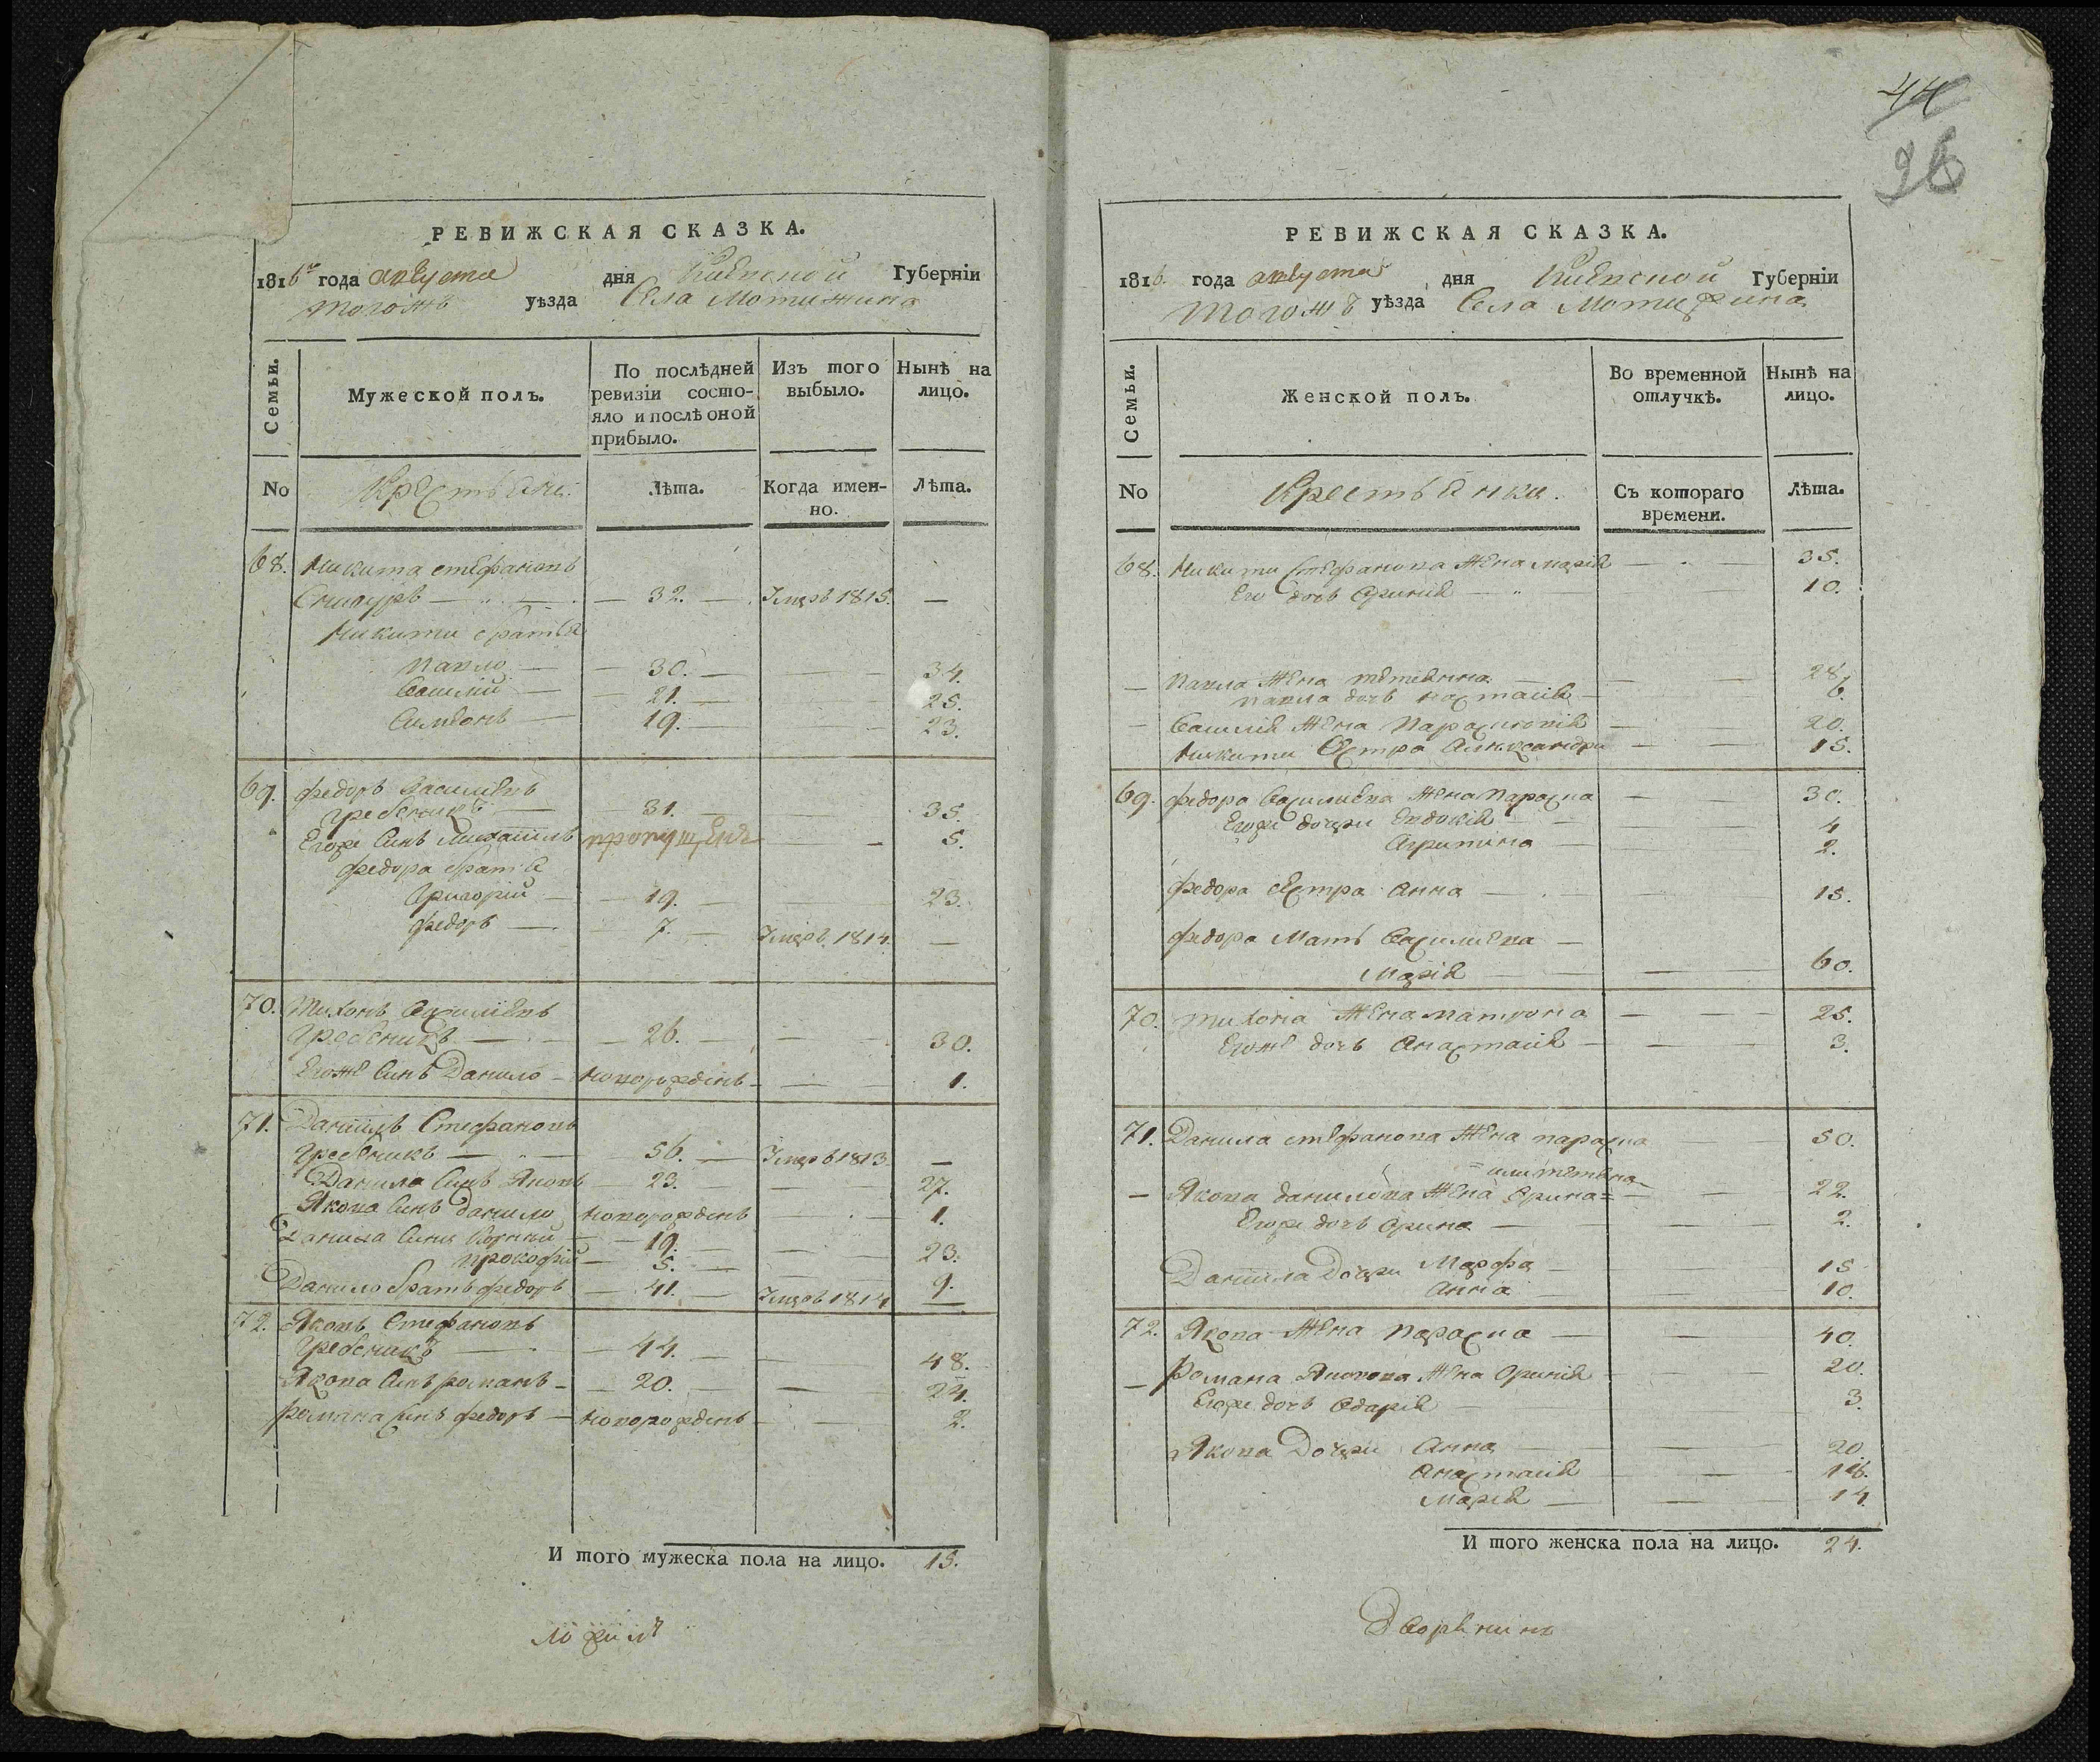 РЕВИЖСКАЯ СКАЗКА.
1816го года августа дня Киевской Губерніи
тогожъ уѣзда Села Мотижина
Семьи.
Мужеской полъ.
По послѣдней ревизіи состо-
яло и послѣ оной прибыло.
Изъ того выбыло.
Нынѣ на лицо.
No Крестьяне. Лѣта. Когда имен-
но. Лѣта.
68. Никита стефановъ
— 32. — Умеръ 1815. —
Никити братья
Павло — 30. — 34.
Василій — 21. — 25.
Симеонъ — 19. — 23.
69. Федоръ Василіевъ
Гребеникъ — 31. — 35.
Егоже Синъ Михаилъ — 5.
Федора братья
Григорій — 19. — 23.
Федоръ — 7. — Умеръ 1814. —
70. Тихонъ Василіевъ
Гребеникъ — 26. — 30.
Егоже Синъ Данило — новорожденъ — 1.
71. Даніилъ Стефановъ
Гребеникъ — 56. — Умеръ 1813. —
Данила Синъ Яковъ — 23. — 27.
Якова Синъ Данило новорожденъ — 1.
Данила Сини — 19. — 23.
Прокофій — 5. — 9.
Данило братъ Федоръ — 41. — Умеръ 1814 —
72. Яковъ Стефановъ
Гребеникъ — 44. — 48.
Якова Синъ романъ — 20. — 24.
Романа Синъ Федоръ — новорожденъ — 2.
И того мужеска пола на лицо. 15.
44
26
РЕВИЖСКАЯ СКАЗКА.
1816. года августа дня Киевской Губерніи
тогожъ уѣзда Села Мотижина
Семьи.
Женской полъ.
Во временной отлучкѣ.
Нынѣ на лицо.
No Крестьянки. Съ котораго времени. Лѣта.
68. Никити Стефанова жена Марія — 35.
Его дочь Ориния — 10.
— Павла жена тетянна — 28.
Павла дочь настасія — 6.
— Василія жена Парасковія — 20.
Никити Сестра Александра — 15.
69. Федора Василиева жена Параска — 30.
Егоже дочери Евдокія — 4
Агрипина — 2.
Федора Сестра Анна — 15.
Федора Мать Василиева —
Марія — 60.
70. Тихона жена матрона — 25.
Егоже дочь Анастасія — 3.
71. Данила стефанова жена параска — 50.
= или тетяна
— Якова данилова жена Орина = — 22.
Егоже дочь Орина — 2.
Даніила Дочери Марфа — 15
Анна — 10.
72. Якова жена Параска — 40.
— Романа Яковова жена Ориния — 20.
Егоже дочь Одарія — 3.
Якова Дочери Анна — 20
Анастасія — 16.
Марія — 14
И того женска пола на лицо. 24.
Дворянинъ